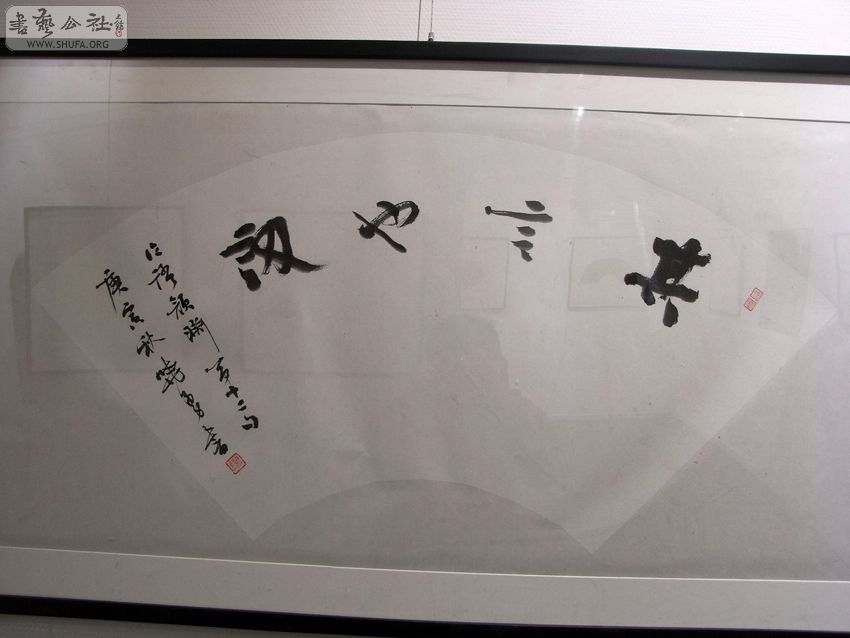 書藝公社
WWW.SHUFA.ORG
其言也訒
論語顏淵第十二句
庚寅秋曉勇書